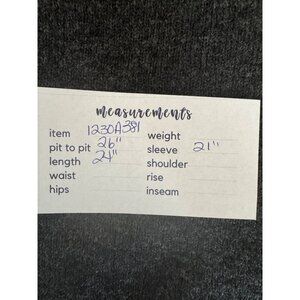 measurements
item 1230A381 weight
pit to pit 26" sleeve 21"
length 24" shoulder
waist rise
hips inseam